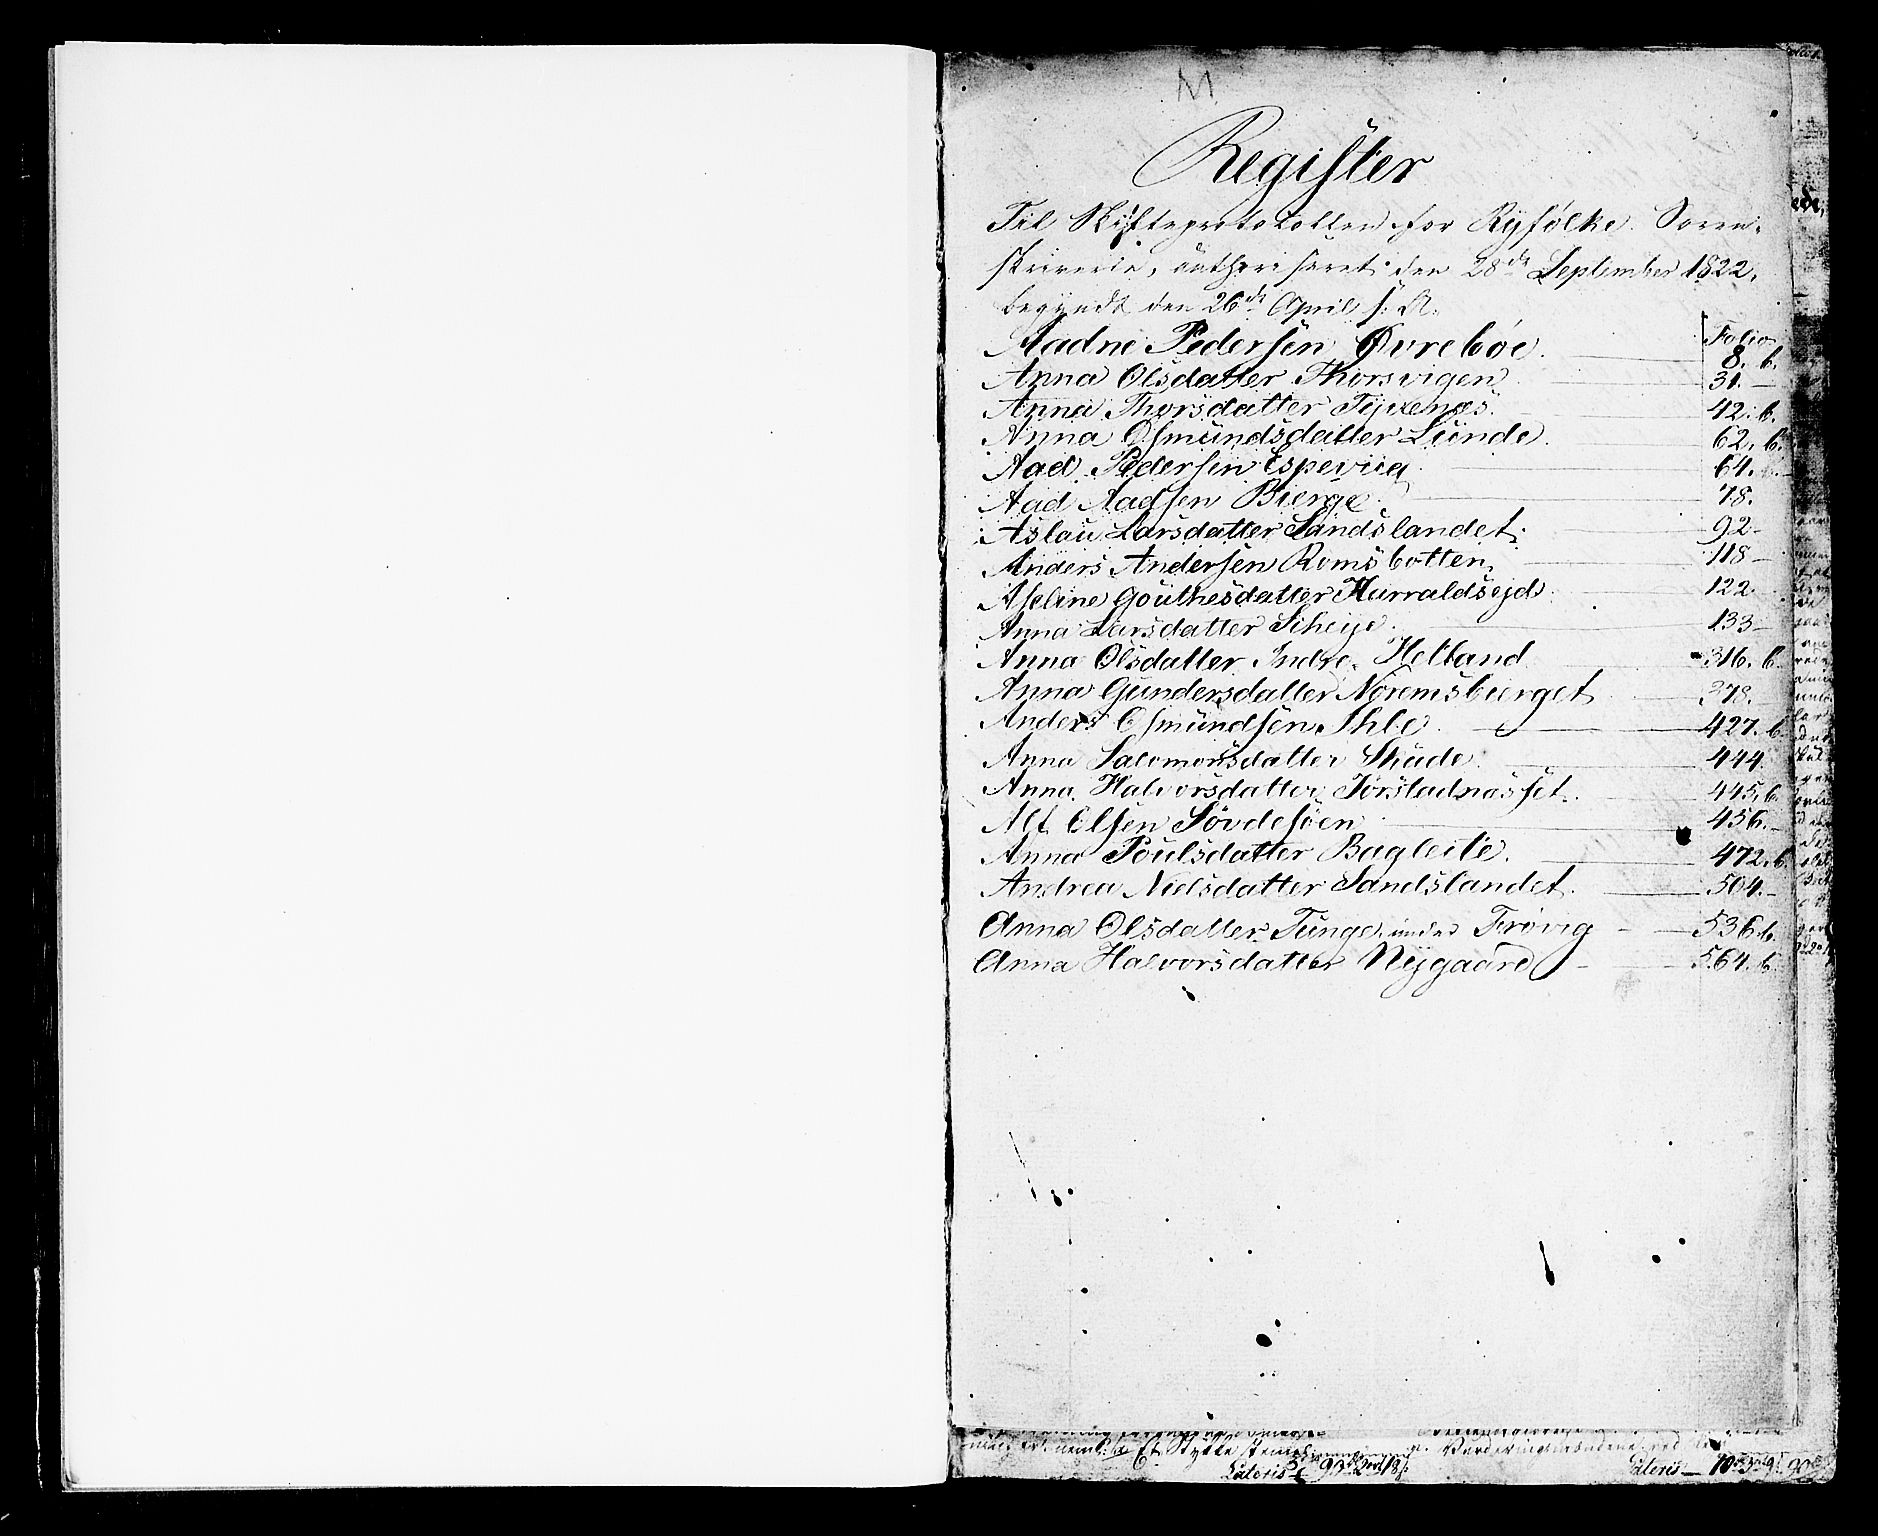 Register
Til Skifteprotokollen for Ryfölke Soren-
skriverie, authoriseret den 28de September 1822,
begyndt den 26de April s. A.
Folio
Aadne Pedersen Øvreböe. 8. b.
Anna Olsdatter Thorsvigen 31. —
Anna Thorsdatter Tyxenæs. 42. b.
Anna Osmundsdatter Lunde. 62. b.
Aad Pedersen Espevig 64.
Aad Aadsen Bierge. 78.
Aslau Larsdatter Sandslandet. 92 —
Anders Andersen Romsbotten. 118 —
Aseline Gouthesdatter Harraldsejd 122
Anna Larsdatter Scheije. 133 —
Anna Olsdatter Indre Hetland 316. b.
Anna Gundersdatter Noremsbierget 378.
Anders Osmundsen Ihle. 427. b.
Anna Salomonsdatter Skude. 444.
Anna Halvorsdatter Jörstadnæsset. 445. b.
Alf Olsen Sövdesöen 456. —
Anna Poulsdatter Bagleite. 472. b.
Andrea Nielsdatter Sandslandet. 504. —
Anna Olsdatter Tunge, under Frövig 536. b.
Anna Halvorsdatter Nÿgaard 564. b.
Et Stykke
Lateris
Lateris